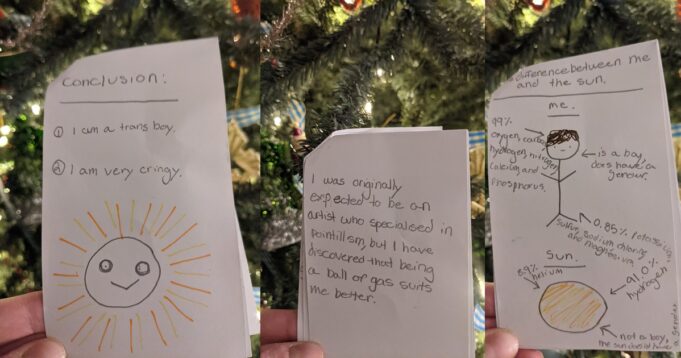 Conclusion:
① I am a trans boy.
② I am very cringy.
I was originally
expected to be an
artist who specialised in
pointillism, but I have
discovered that being
a ball of gas suits
me better.
difference between me
and the sun.
me.
99%
oxygen, carbon
hydrogen, nitrogen
Calcium, and
Phosphorus.
is a boy
does have a
gender.
0.85% Potassium,
Sulfur, sodium, chlorine
and magnesium
Sun.
8.9%
helium
91.0%
hydrogen
not a boy,
the sun does not have
a gender